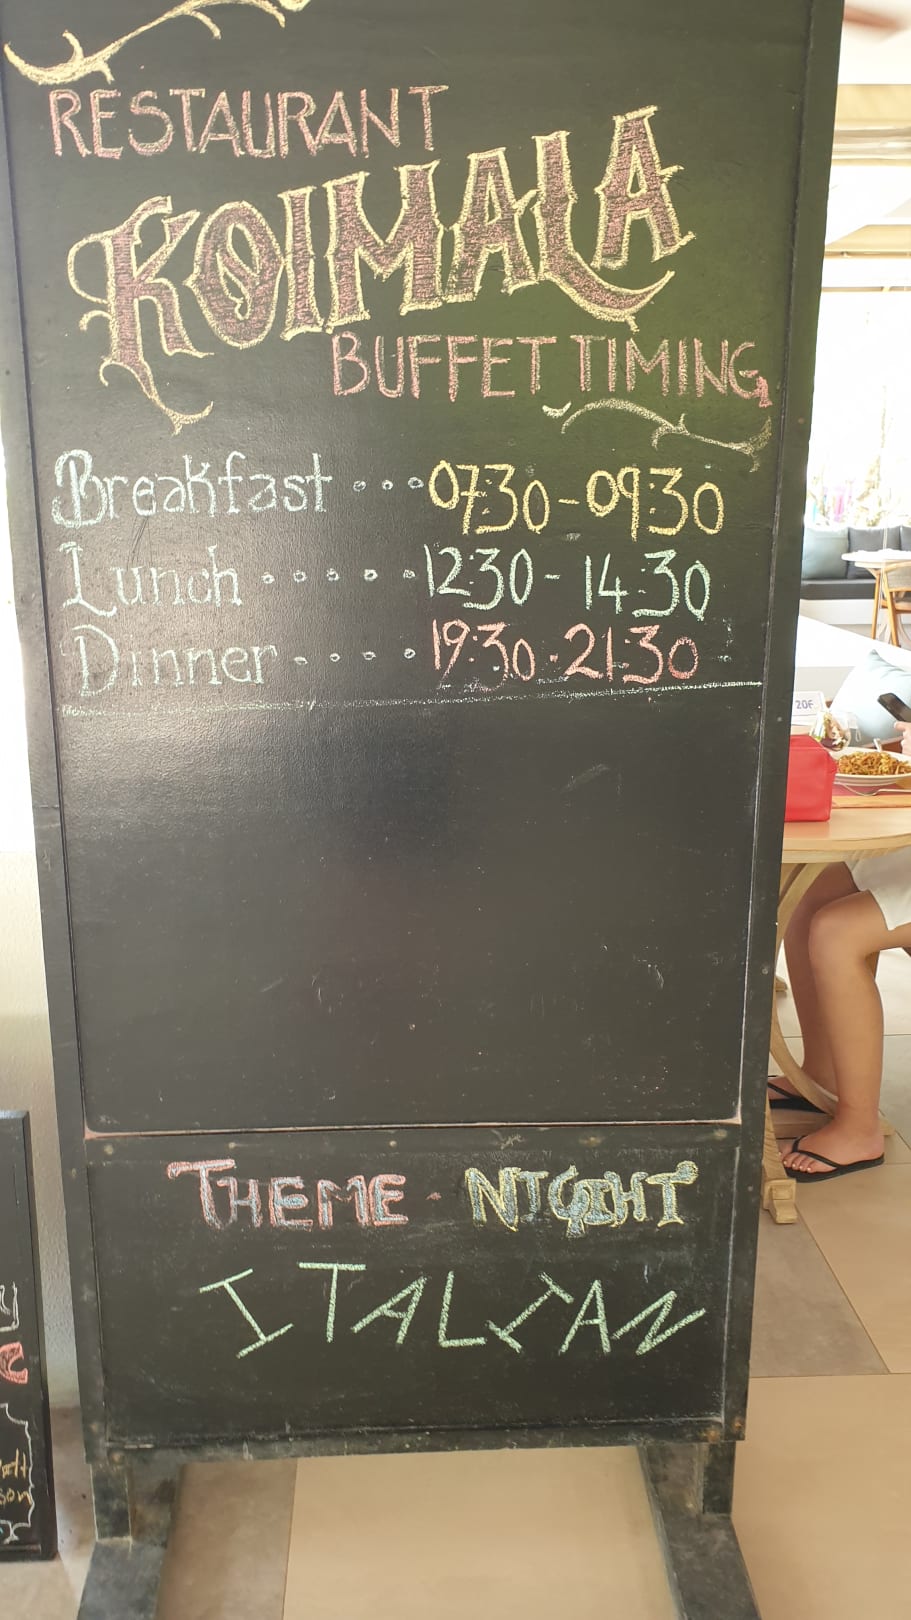 RESTAURANT
KOIMALA
BUFFET TIMING
Breakfast ... 07:30 - 09:30
Lunch ..... 12:30 - 14:30
Dinner .... 19:30 - 21:30
THEME - NIGHT
ITALIAN
20F